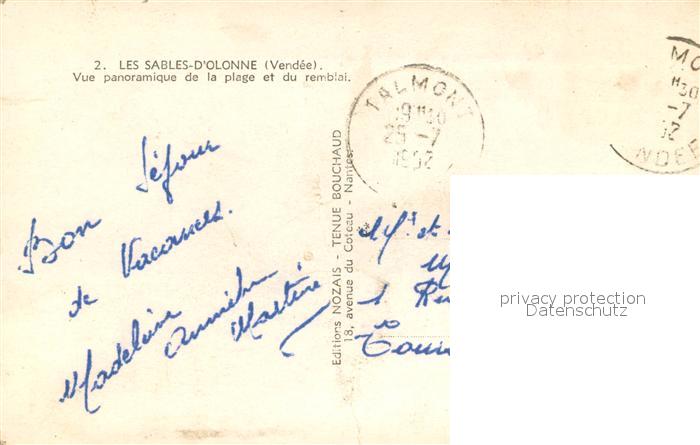 2. LES SABLES-D'OLONNE (Vendée).
Vue panoramique de la plage et du remblai.
TALMONT
9H30
29-7
1952
MO
H30
-7
52
NDEE
Bon Séjour
de Vacances.
Madeleine
Martine
Editions NOZAIS - TENUE BOUCHAUD
18, avenue du Coteau - Nantes
Mr et
1 Rue
privacy protection
Datenschutz